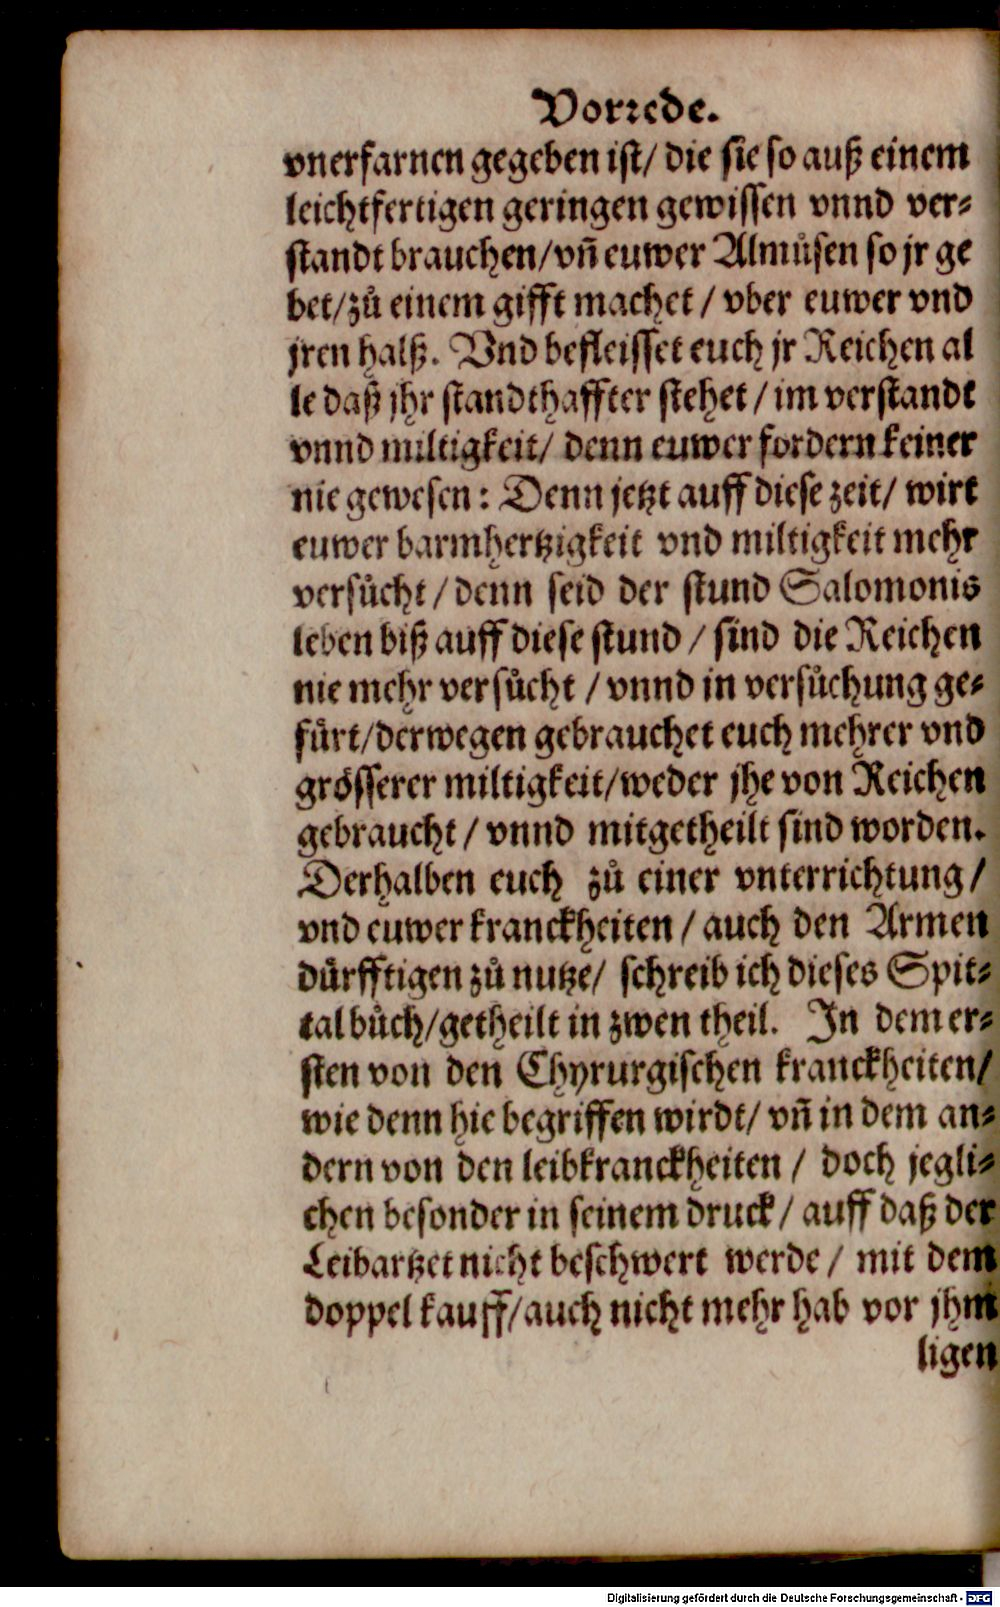 Vorrede.
vnerfarnen gegeben ist/ die sie so auß einem
leichtfertigen geringen gewissen vnnd ver-
standt brauchen/vn̄ euwer Almůsen so jr ge
bet/zů einem gifft machet / vber euwer vnd
jren halß. Vnd befleisset euch jr Reichen al
le daß jhr standthaffter stehet / im verstandt
vnnd miltigkeit/ denn euwer fordern keiner
nie gewesen: Denn jetzt auff diese zeit/ wirt
euwer barmhertzigkeit vnd miltigkeit mehr
versůcht / denn seid der stund Salomonis
leben biß auff diese stund / sind die Reichen
nie mehr versůcht / vnnd in versůchung ge-
fůrt/derwegen gebrauchet euch mehrer vnd
grösserer miltigkeit/weder jhe von Reichen
gebraucht / vnnd mitgetheilt sind worden.
Derhalben euch zů einer vnterrichtung /
vnd euwer kranckheiten / auch den Armen
dürfftigen zů nutze/ schreib ich dieses Spit-
talbůch/getheilt in zwen theil. In dem er-
sten von den Chyrurgischen kranckheiten/
wie denn hie begriffen wirdt/ vn̄ in dem an-
dern von den leibkranckheiten / doch jegli-
chen besonder in seinem druck / auff daß der
Leibartzet nicht beschwert werde / mit dem
doppel kauff/auch nicht mehr hab vor jhm
ligen
Digitalisierung gefördert durch die Deutsche Forschungsgemeinschaft - DFG